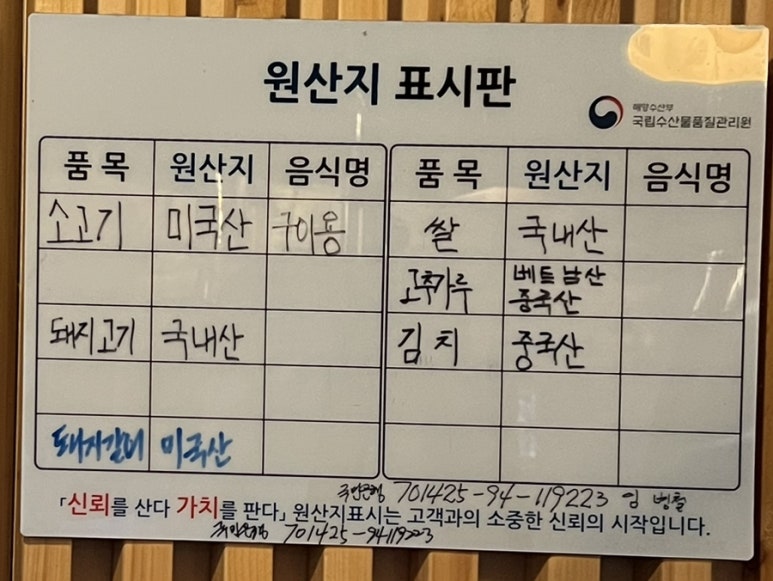 원산지 표시판
해양수산부
국립수산물품질관리원
품 목 원산지 음식명
소고기 미국산 구이용
돼지고기 국내산
돼지갈비 미국산
품 목 원산지 음식명
쌀 국내산
고추가루 베트남산 중국산
김치 중국산
국민은행 701425-94-119223 임병철
「신뢰를 산다 가치를 판다」 원산지표시는 고객과의 소중한 신뢰의 시작입니다.
국민은행 701425-94119223